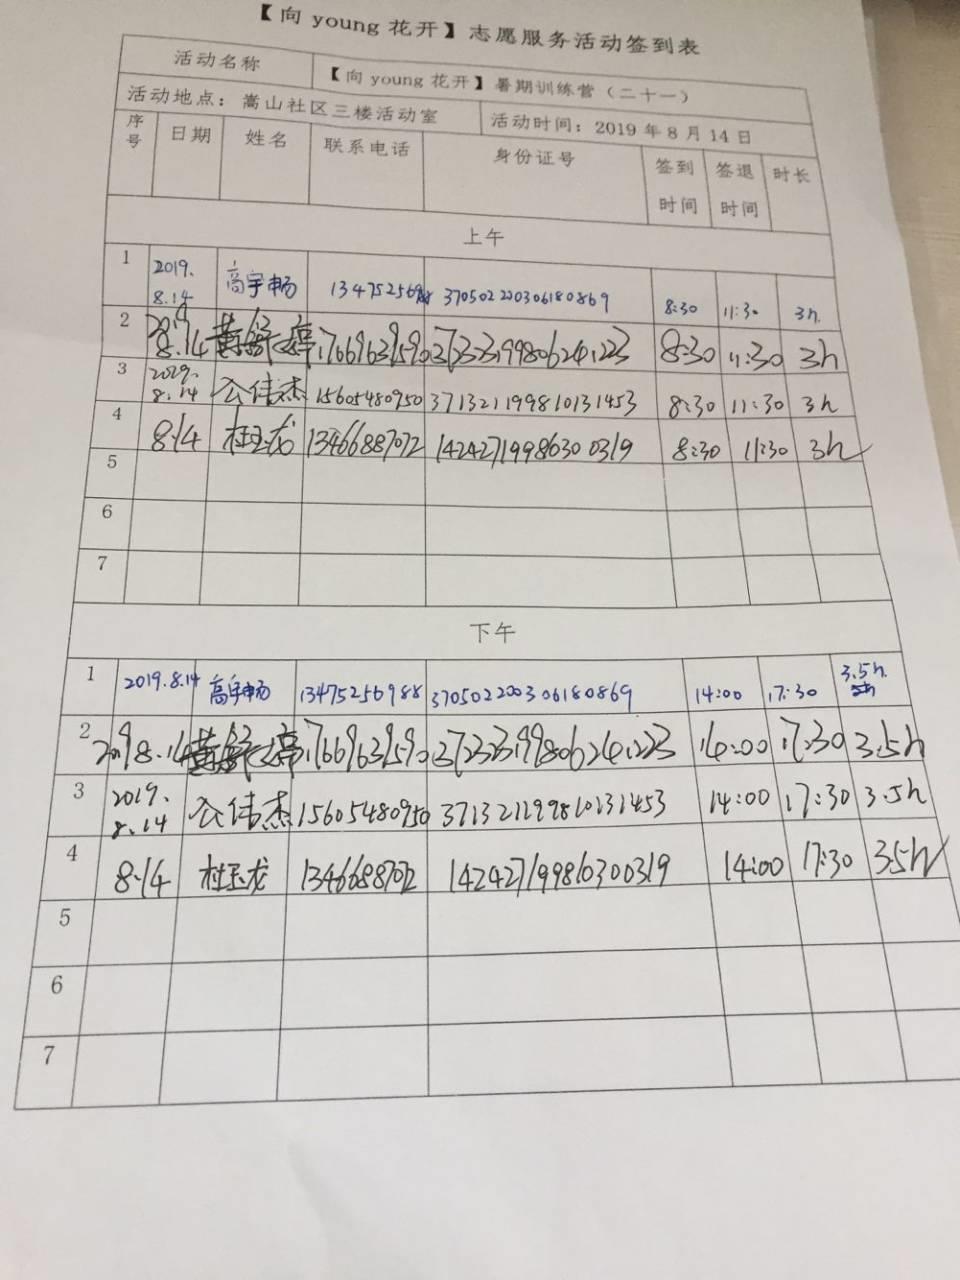 【向 young 花开】志愿服务活动签到表
活动名称 【向 young 花开】暑期训练营（二十一）
活动地点：嵩山社区三楼活动室 活动时间：2019 年 8 月 14 日
序号 日期 姓名 联系电话 身份证号 签到时间 签退时间 时长
上午
1 2019.8.14 高宇畅 370502200306180869 8:30 11:30 3h.
2 2019 8.14 17669639590 372323199806241223 8:30 11:30 3h
3 2019.8.14 公伟杰 15605480950 371321199810131453 8:30 11:30 3h
4 8.14 杜玉龙 13466887072 8:30 11:30 3h
5
6
7
下午
1 2019.8.14 高宇畅 13475256988 370502200306180869 14:00 17:30 3.5h.
2 2019 8.14 17669639590 372323199806241223 14:00 17:30 3.5h
3 2019.8.14 公伟杰 15605480950 371321199810131453 14:00 17:30 3.5h
4 8.14 杜玉龙 13466887072 142427199810300319 14:00 17:30 3.5h
5
6
7